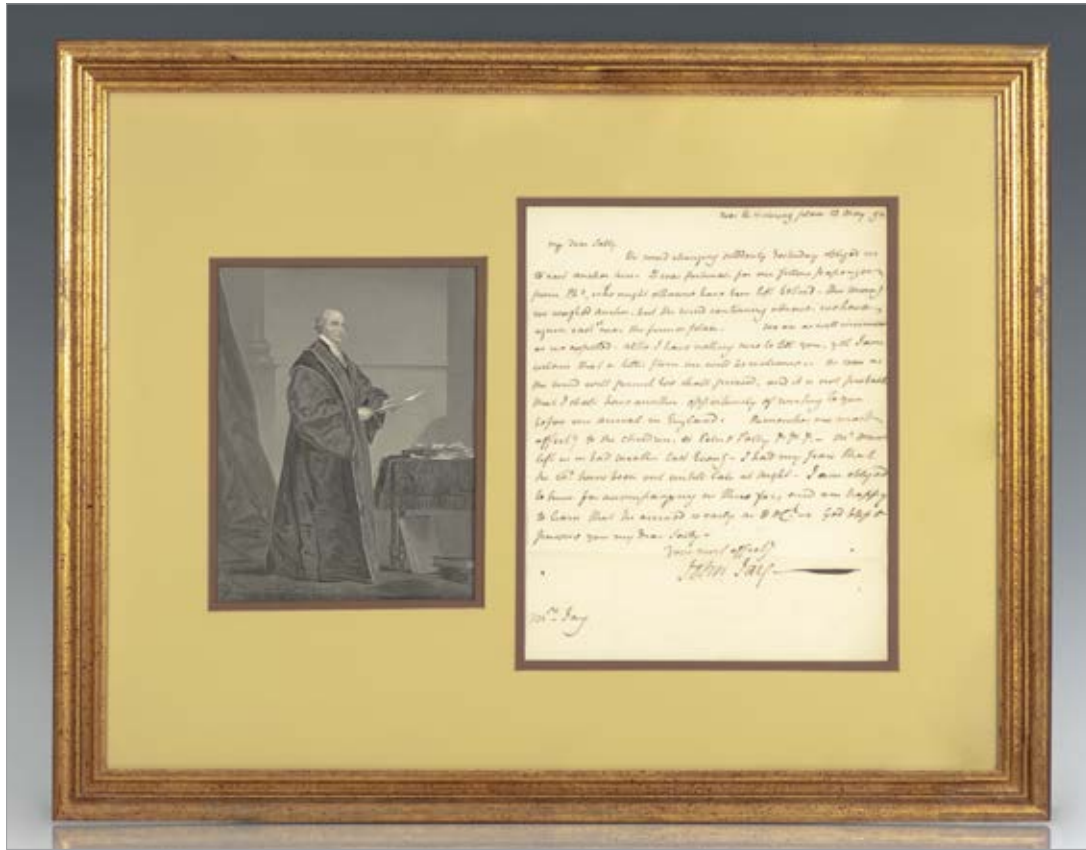 near the                 13 May 94
my dear Sally
The wind changing suddenly Yesterday obliged us
to cast anchor here. It was fortunate for our fellow passengers
from Ph<sup>a</sup>, who might otherwise have been left behind. This morng
we weighed anchor, but the wind continuing adverse, we have
again cast near the former place. We are as well
as we expected. altho I have nothing new to tell you, yet I am
that a letter from me will be welcome. As soon as
the wind will permit we shall proceed, and it is not probable
that I shall have another opportunity of writing to you
before our arrival in England. Remember me most
affecty to the children, to
left us in bad weather last Eveng. I had my fears that
he have been out until late at night. I am obliged
to him for accompanying us thus far, and am happy
to learn that he arrived safely God bless &
preserve you my dear Sally.
Your most affecty
John Jay
Mrs Jay